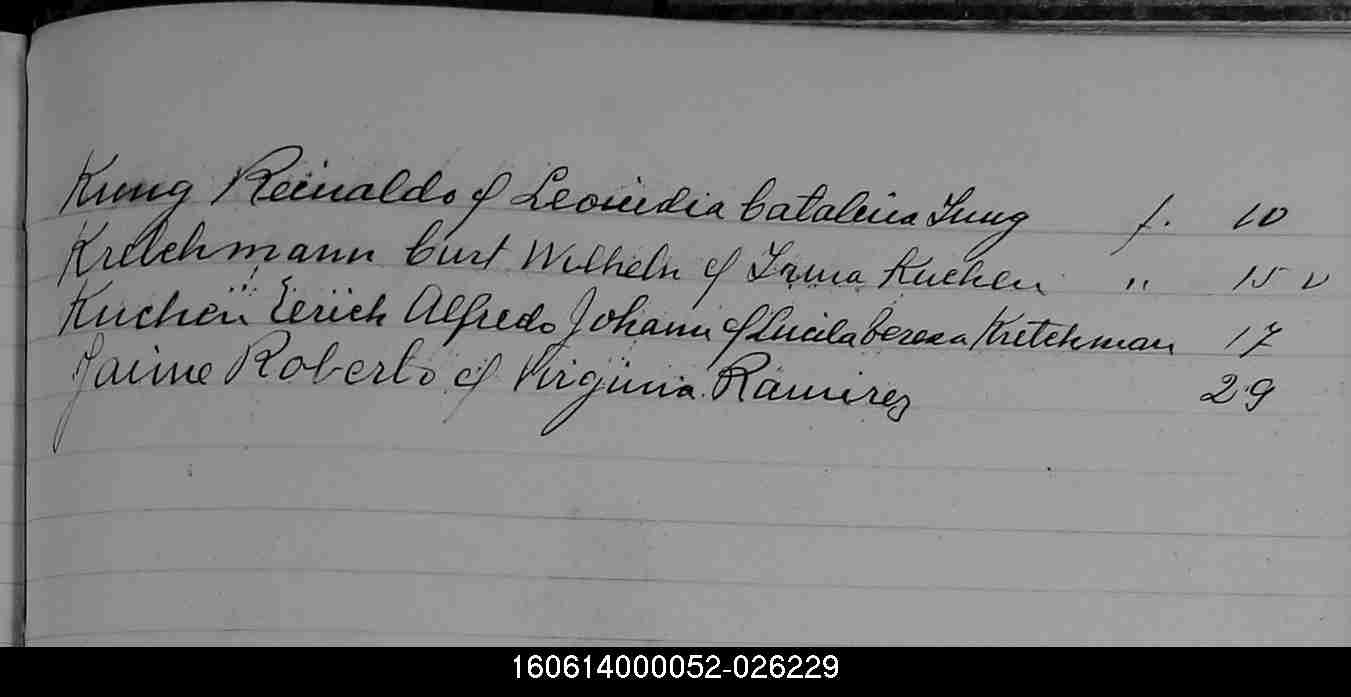 Kung Reinaldo cf Leonidia Catalina Jung f. 10
Kretchmann Curt Wilheln cf Irma Kuchen " 15 v
Kuchen Eerich Alfredo Johann cf Lucila Cereza Kretchman 17
Jaime Roberto cf Virginia Ramirez 29
160614000052-026229